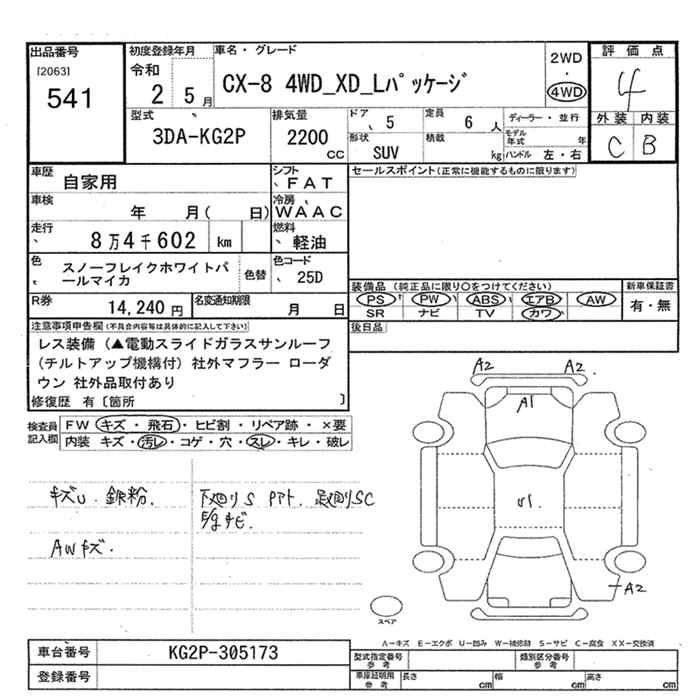 出品番号 初度登録年月 車名・グレード 評価点
[2063] 令和 2WD
541 2 5月 CX-8 4WD_XD_Lパッケージ ・ 4WD 4
型式 排気量 ドア 5 定員 6人 ディーラー・並行 外装 内装
3DA-KG2P 2200cc 形状 SUV 積載 kg モデル年式 年 C B
ハンドル 左・右
車歴 自家用 シフト FAT セールスポイント(正常に機能するものに限ります)
車検 年 月( 日) 冷房 WAAC
走行 8万4千602 km 燃料 軽油
色 スノーフレイクホワイトパールマイカ 色替 色コード 25D
装備品 (純正品に限り○をつけてください) 新車保証書
PS PW ABS エアB AW 有・無
SR ナビ TV カワ
R券 14,240円 名変通知期限 月 日
後日品
注意事項申告欄(不具合内容等は具体的に記入して下さい)
レス装備 (▲電動スライドガラスサンルーフ
(チルトアップ機構付) 社外マフラー ローダ
ウン 社外品取付あり
修復歴 有〔箇所 〕
検査員記入欄 FW キズ・飛石・ヒビ割・リペア跡・×要
内装 キズ・汚レ・コゲ・穴・スレ・キレ・破レ
A2 A2
A1
キズU 鉄粉 下廻りS 足廻りSC
U1
AWキズ.
A2
スペア
A-キズ E-エクボ U-凹み W-補修跡 S-サビ C-腐食 XX-交換済
車台番号 KG2P-305173 型式指定番号 参考 類別区分番号 参考
登録番号 車庫証明用 参考 長さ cm 幅 cm 高さ cm